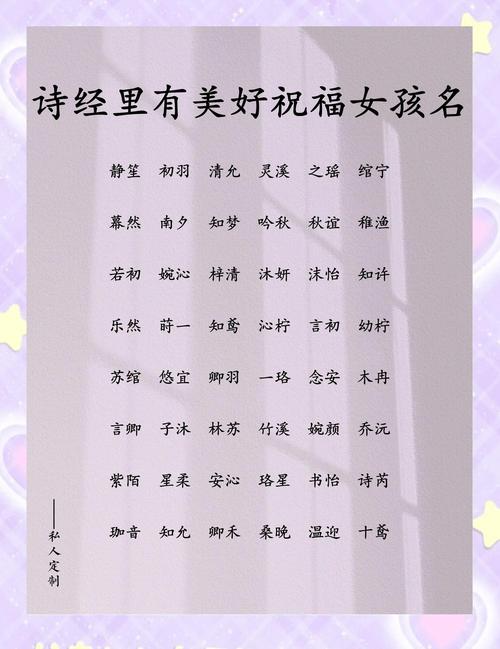 诗经里有美好祝福女孩名
静笙 初羽 清允 灵溪 之瑶 绾宁
幕然 南夕 知梦 吟秋 秋谊 稚渔
若初 婉沁 梓清 沐妍 沫怡 知许
乐然 莳一 知鸢 沁柠 言初 幼柠
苏绾 悠宜 卿羽 一珞 念安 木冉
言卿 子沐 林苏 竹溪 婉颜 乔沅
紫陌 星柔 安沁 珞星 书怡 诗芮
珈音 知允 卿禾 桑晚 温迎 十鸢
——私人定制